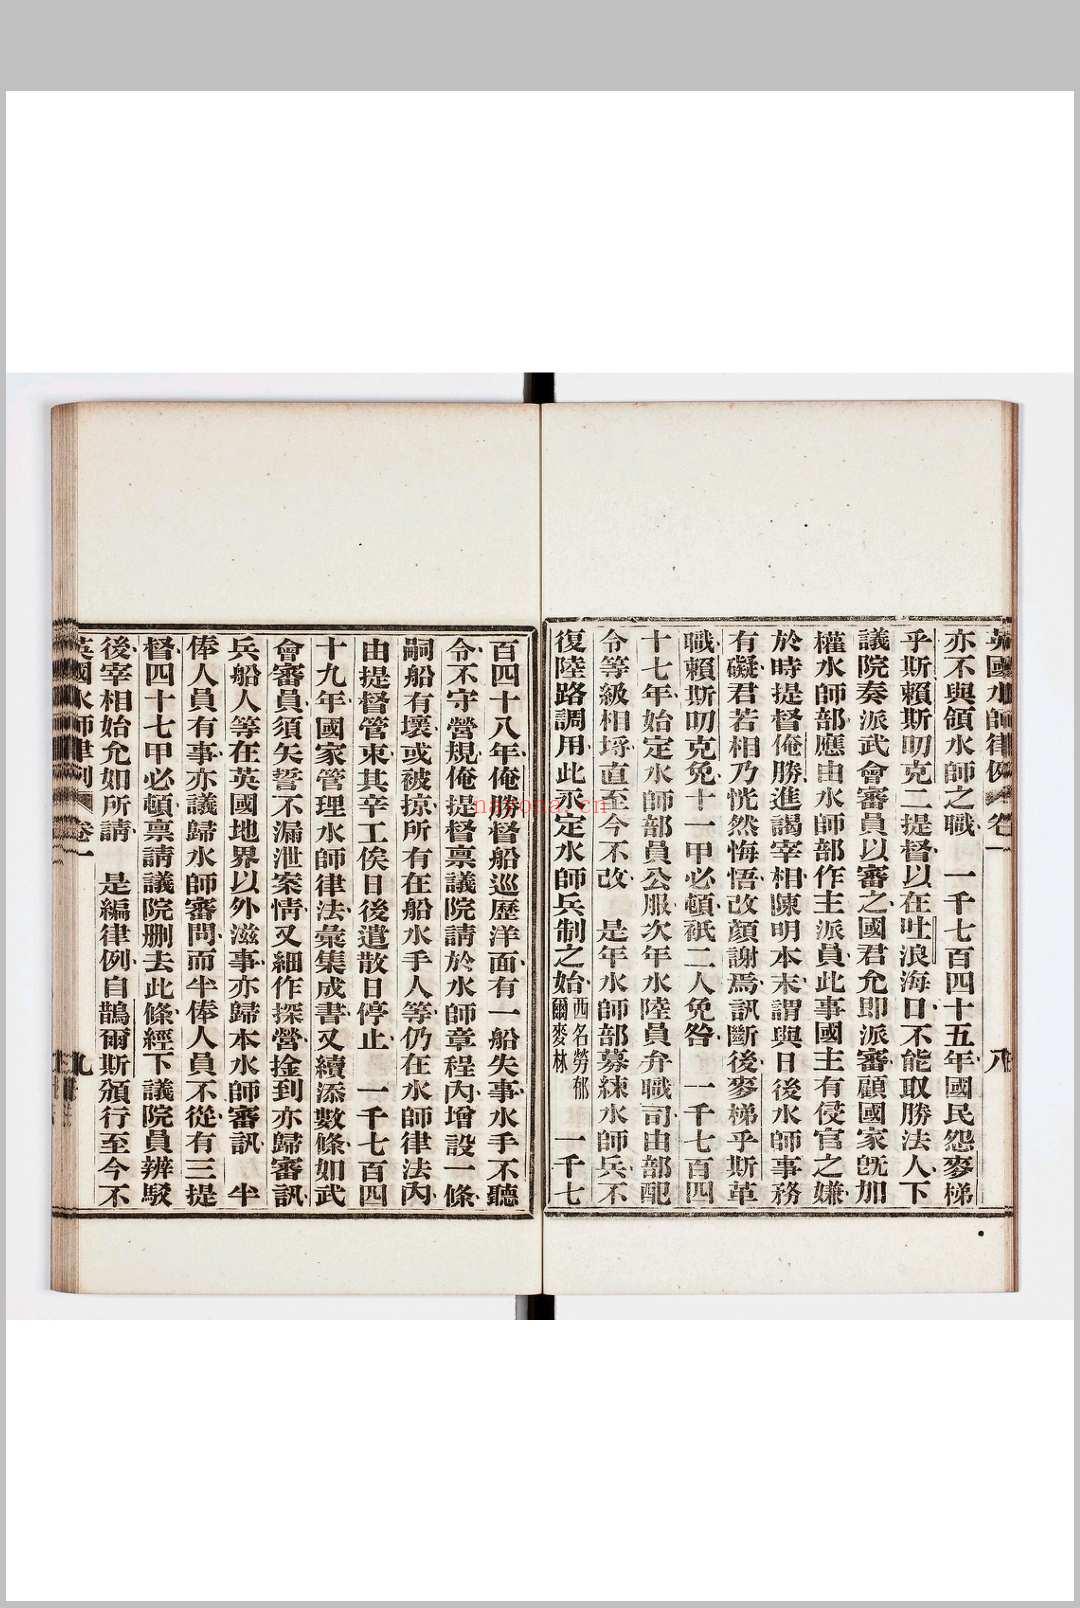 英國水師律例 卷一 八
亦不與領水師之職 一千七百四十五年國民怨麥梯
乎斯賴斯叨克二提督以在吐浪海口不能取勝法人下
議院奏派武會審員以審之國君允即派審顧國家既加
權水師部應由水師部作主派員此事國主有侵官之嫌
於時提督俺勝進謁宰相陳明本末謂與日後水師事務
有礙君若相乃恍然悔悟改顏謝焉訊斷後麥梯乎斯革
職賴斯叨克免十一甲必頓祇二人免咎 一千七百四
十七年始定水師部員公服次年水陸員弁職司由部配
令等級相埒直至今不改 是年水師部募練水師兵不
復陸路調用此永定水師兵制之始西名勞郁爾麥林 一千七
百四十八年俺勝督船巡歷洋面有一船失事水手不聽
令不守營規俺提督稟議院請於水師章程內增設一條
嗣船有壞或被掠所有在船水手人等仍在水師律法內
由提督管束其辛工俟日後遣散日停止 一千七百四
十九年國家管理水師律法彙集成書又續添數條如武
會審員須矢誓不漏泄案情又細作探營捦到亦歸審訊
兵船人等在英國地界以外滋事亦歸本水師審訊 半
俸人員有事亦議歸水師審問而半俸人員不從有三提
督四十七甲必頓稟請議院刪去此條經下議院員辨駁
後宰相始允如所請 是編律例自鵲爾斯頒行至今不
英國水師律例 卷一 九
nayona.cn